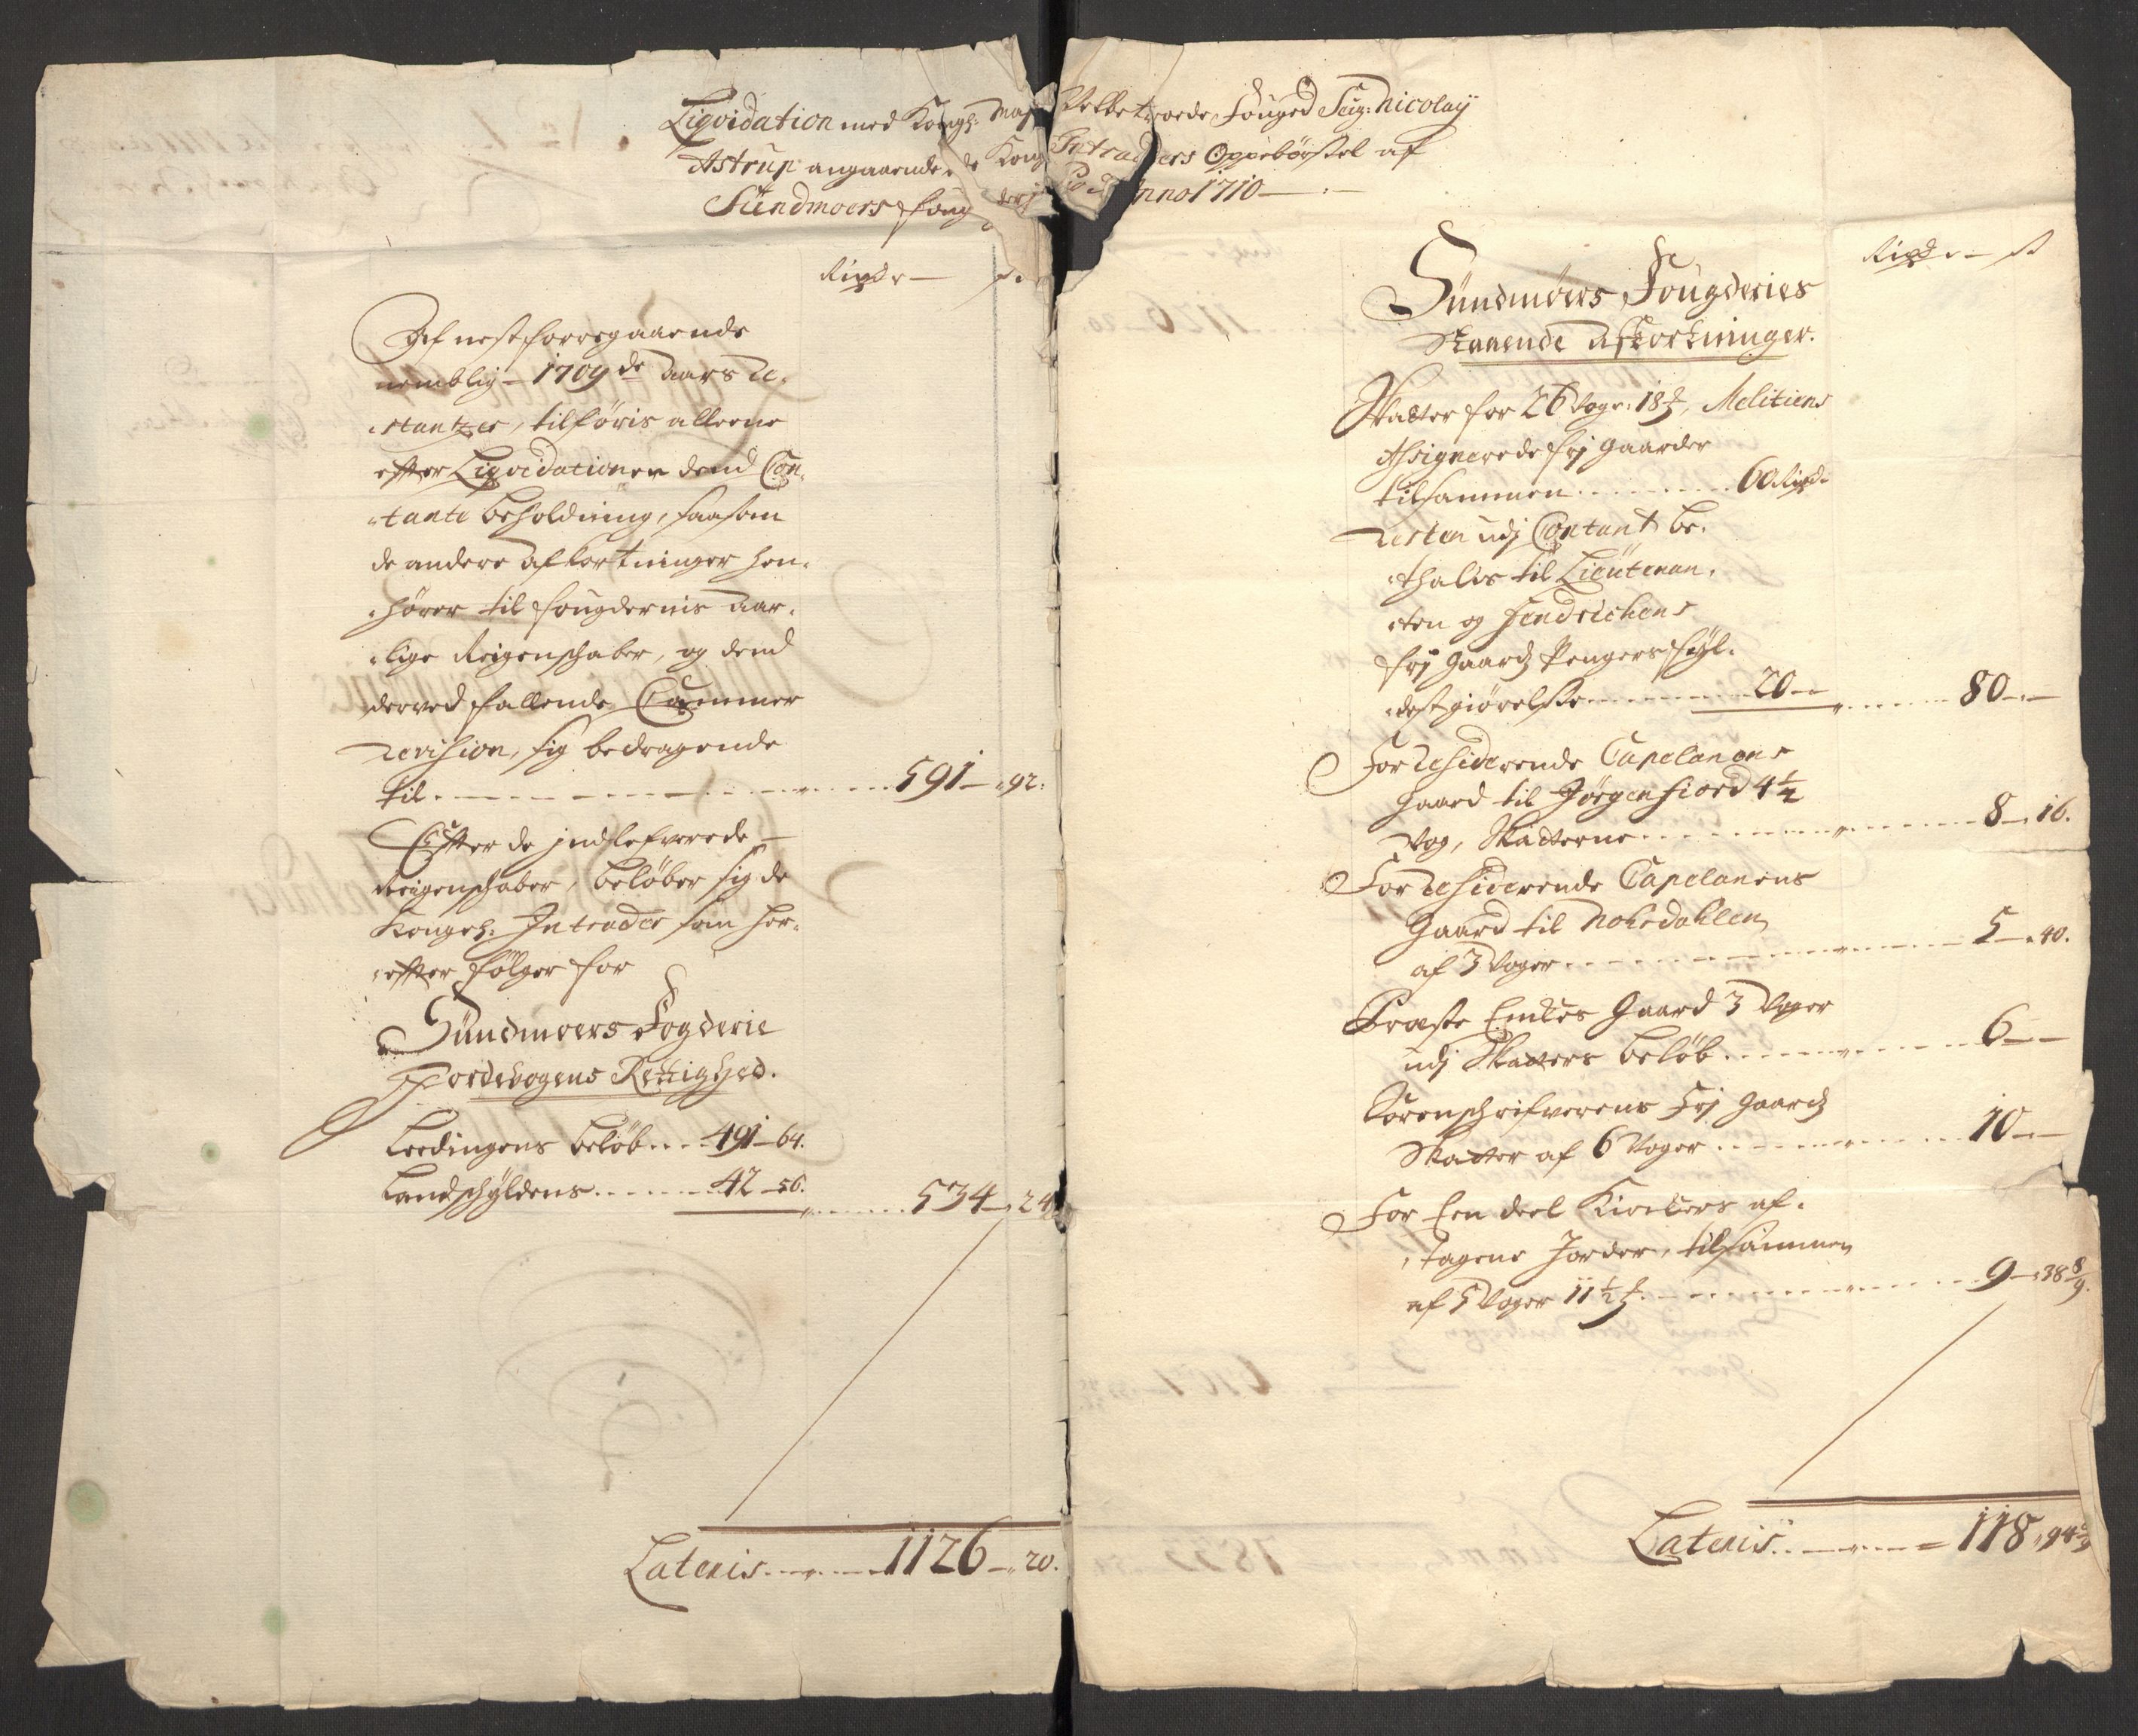 Liqvidation med Kongl: Maj Velbetroede Fouged Seig: Nicolaij
Astrup angaaende de Kong Intraders Oppebörßel af
Sündmoers foug derj Pro Anno 1710
Rixdr — ß.
Af nest forregaaende
nemblig 1709de aars Re-
stantzer, tilföris alleene
efter Liqvidationen dend Con-
tante beholdning, saasom
de andere afkortninger hen-
hörer til fougderiis aar-
lige Reigenschaber, og dend
derved fallende Cammer
Revision, sig bedragende
til 591 — 92.
Efter de indlefverede
Reigenschaber, belöber sig de
Kongel: Intrader som her-
effter fölger for
Sündmoers Fogderie
Jordebogens Rettighed.
Leedingens belöb 491 - 64.
Landschyldens 42 - 56. 534 — 24
Lateris 1126 — 20.
Rixdr — ß
Sündmoers Fougderies
Staaende Afkortninger.
Skatter for 26 Voger: 18 Melitiens
Assignerede frj Gaarder
tilsammen 60 Rixdr
Resten udj Contant be-
thalis til Lieutenan-
ten og Fendrichens
frj Gaards Pengers fyl-
destgiörelse 20 — 80 —
For Residerende Capelanens
Gaard til Jörgenfiord 4 1/2
Vog, Skatterne 8 — 16.
For Residerende Capelanens
Gaard til Nohrdahlen
af 3 Voger 5 — 40.
Præste Enckes Gaard 3 Voger
udj Skatters belöb 6 —
Sorenschrifverens Frj Gaards
Skatter af 6 Voger 10 —
For Een deel Kirckers af-
tagene Jorder, tilsammen
af 5 Voger 11 1/2 9 — 38 8/9.
Lateris 118 - 94 8/9